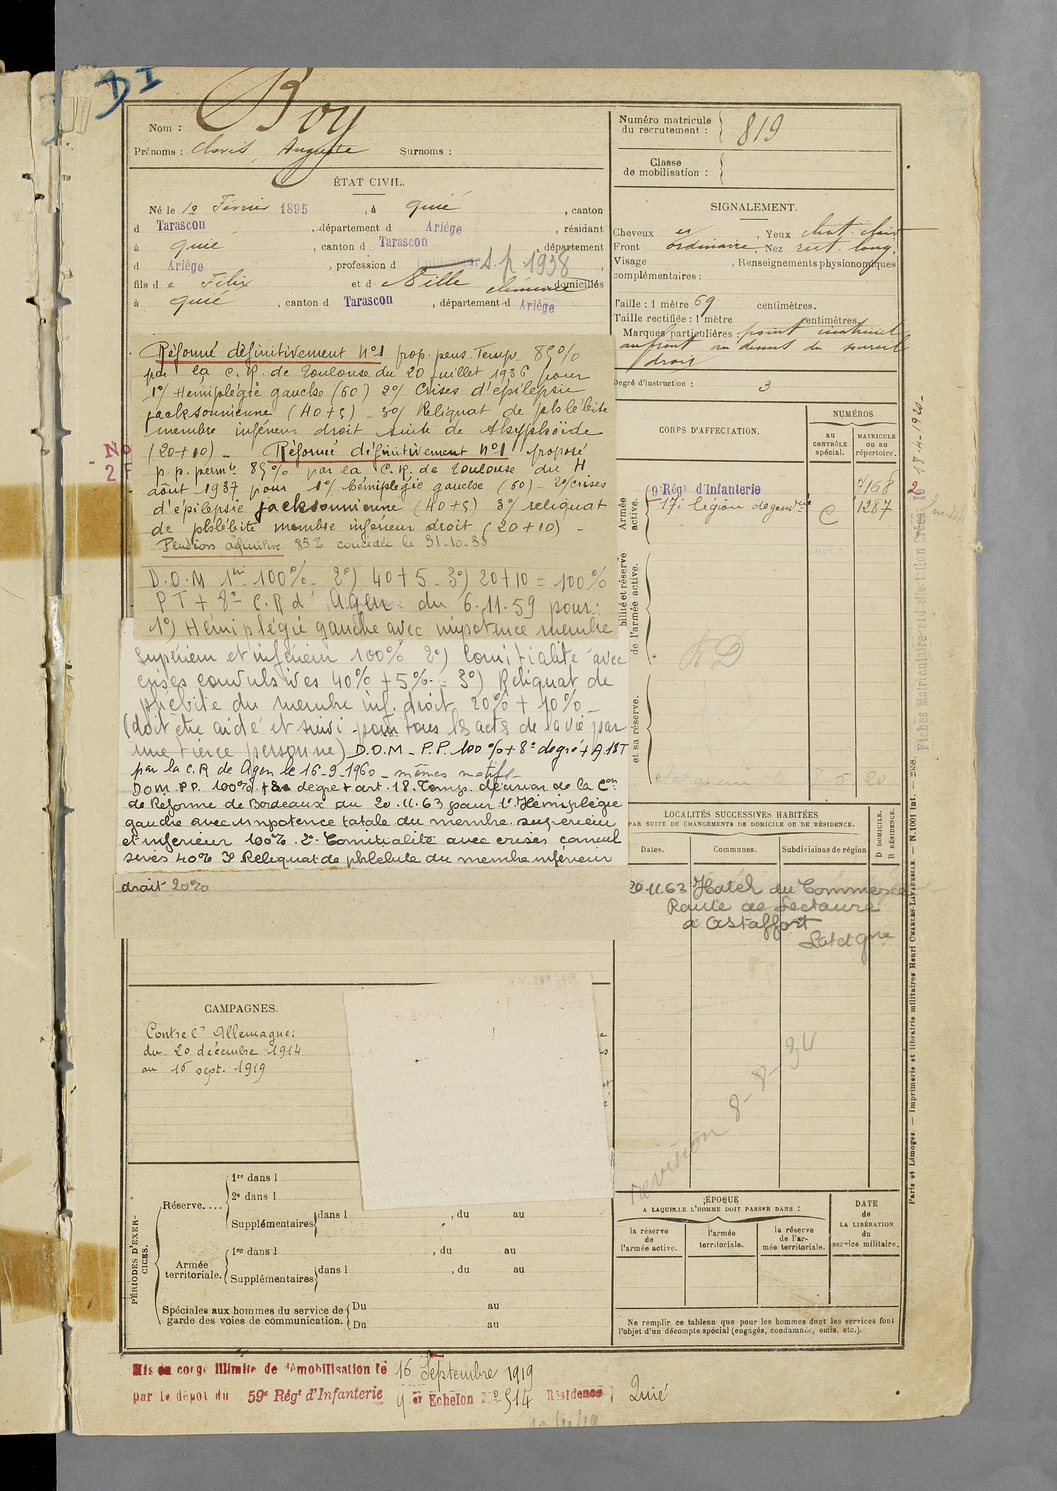 DI
Nom : Boy
Prénoms : Clovis, Auguste Surnoms :
Numéro matricule du recrutement : 819
Classe de mobilisation :
ÉTAT CIVIL.
Né le 12 Février 1895, à Quié, canton
d Tarascon, département d Ariège, résidant
à Quié, canton d Tarascon, département
d Ariège, profession d Cultivateur S.P. 1938
fils d e Félix et d domiciliés
à Quié, canton d Tarascon, département d Ariège
SIGNALEMENT.
Cheveux Yeux chat. clair
Front ordinaire Nez rect. long.
Visage , Renseignements physionomiques
complémentaires :
Taille : 1 mètre 69 centimètres.
Taille rectifiée : 1 mètre centimètres.
Marques particulières :
au front au dessus du sourcil
droit
Degré d'instruction : 3
Réformé définitivement N°1 prop. pens. Temp 85%
par la C.R. de Toulouse du 20 juillet 1936 pour
1°/ Hémiplégie gauche (60) 2°/ Crises d'épilepsie
jacksonnienne (40+5) _ 3°/ Reliquat de phlébite
membre inférieur droit suite de
(20+10) _ Réformé définitivement N°1 proposé
p.p. permte 85% par la C.R. de Toulouse du 4
août 1937 pour 1°/ hémiplégie gauche (60) _ 2°/ crises
d'épilepsie jacksonnienne (40+5) 3°/ reliquat
de phlébite membre inférieur droit (20+10) _
Pension définitive 85% concédée le 31-10-38
No
2 F
D.O.M 100% _ 2°) 40+5 _ 3°) 20+10 = 100%
P T + 8° C.R d'Agen du 6.11.59 pour :
1°) Hémiplégie gauche avec impotence membre
supérieur et inférieur 100% 2°) Comitialité avec
crises convulsives 40% + 5% _ 3°) Reliquat de
phlébite du membre inf. droit 20% + 10% _
(doit être aidé et suivi pour tous les acts de la vie par
une tierce personne) D.O.M _ P.P. 100% + 8° degré + A.18T
par la C.R de Agen le 16-9-1960 _ mêmes motifs _
Dom. P.P. 100% + 8e degré + art. 18. de la Con
de Réforme de Bordeaux du 20.11.63 pour 1° Hémiplégie
gauche avec impotence totale du membre supérieur
et inférieur 100%. 2° Comitialité avec crises convul
sives 40% 3° Reliquat de phlébite du membre inférieur
droit 20%
CORPS D'AFFECTATION.
NUMÉROS
au CONTRÔLE spécial.
MATRICULE ou au répertoire.
Armée active.
9e Régt d'Infanterie 7168
17e légion de gendie C 1287
de l'armée active.
RD
et sa réserve.
LOCALITÉS SUCCESSIVES HABITÉES
PAR SUITE DE CHANGEMENTS DE DOMICILE OU DE RÉSIDENCE.
Dates. Communes. Subdivisions de région
D. DOMICILE.
R. RÉSIDENCE.
20.11.63 Hotel du Commerce
Route de Lectoure
à Astaffort
Lot et Gne
revision 8-8-34
CAMPAGNES.
Contre l'Allemagne:
du 20 décembre 1914
au 16 sept. 1919
PÉRIODES D'EXERCICES.
Réserve....
1re dans l
2e dans l
Supplémentaires dans l , du au
Armée territoriale.
1re dans l , du au
Supplémentaires dans l , du au
Spéciales aux hommes du service de garde des voies de communication.
Du au
Du au
ÉPOQUE
A LAQUELLE L'HOMME DOIT PASSER DANS :
la réserve de l'armée active.
l'armée territoriale.
la réserve de l'armée territoriale.
DATE de LA LIBÉRATION du service militaire.
Ne remplir ce tableau que pour les hommes dont les services font
l'objet d'un décompte spécial (engagés, condamnés, omis, etc.).
Mis en congé illimité de démobilisation le 16 Septembre 1919
par le dépôt du 59e Régt d'Infanterie 9 er Echelon N° 514 Résidence Quié
Paris et Limoges. — Imprimerie et librairie militaires Henri CHARLES-LAVAUZELLE. — N. 1001 Int. — 2558.